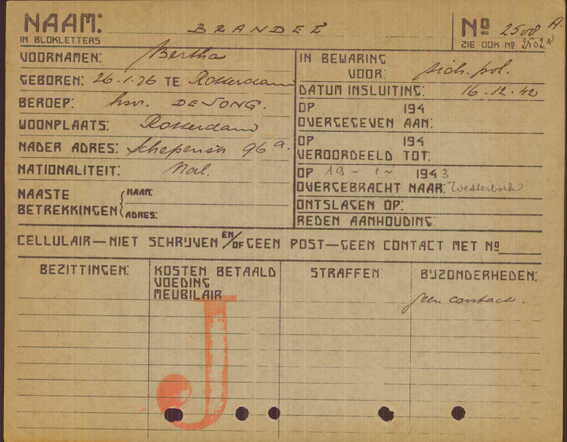 NAAM: BRANDEL Nº 2508 A
IN BLOKLETTERS
ZIE OOK Nº 2502
VOORNAMEN: Bertha
IN BEWARING
VOOR: sich. pol.
GEBOREN: 26.1.76 TE Rotterdam
DATUM INSLUITING: 16.12.42
BEROEP: hsv. DE JONG.
OP 194
OVERGEGEVEN AAN:
WOONPLAATS: Rotterdam
OP 194
VEROORDEELD TOT:
NADER ADRES: 96 a.
NATIONALITEIT: Ned.
OP 19 - 1 - 1943
OVERGEBRACHT NAAR: Westerbork
NAASTE BETREKKINGEN { NAAM:
ADRES:
ONTSLAGEN OP:
REDEN AANHOUDING:
CELLULAIR — NIET SCHRIJVEN EN/OF GEEN POST — GEEN CONTACT MET Nº
BEZITTINGEN: KOSTEN BETAALD STRAFFEN BIJZONDERHEDEN:
VOEDING
MEUBILAIR
geen contact.
J